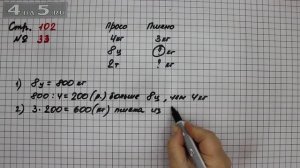 4НА5.RU
Стр. 102
№ 33
Просо Пшено
4кг 3кг
8ц ? кг
2т ? кг
1) 8ц = 800 кг
800 : 4 = 200 (р.) больше 8ц, чем 4кг
2) 3 · 200 = 600 (кг) пшена из